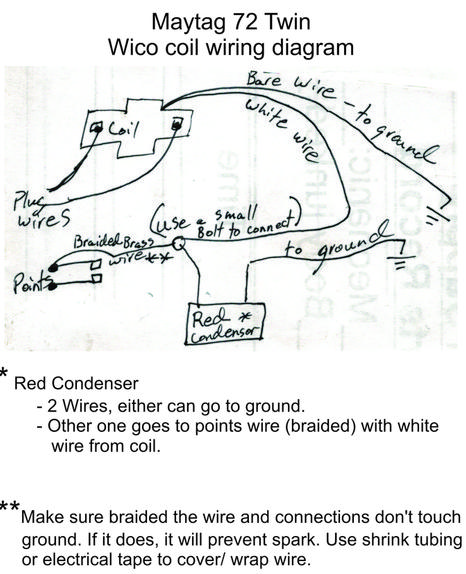 Maytag 72 Twin
Wico coil wiring diagram
Bare wire - to ground
White wire
Coil
Plug
wires
(use a small
Bolt to connect)
Braided Brass
wire**
to ground
Points
Red *
condensor
* Red Condenser
- 2 Wires, either can go to ground.
- Other one goes to points wire (braided) with white
wire from coil.
**Make sure braided the wire and connections don't touch
ground. If it does, it will prevent spark. Use shrink tubing
or electrical tape to cover/ wrap wire.